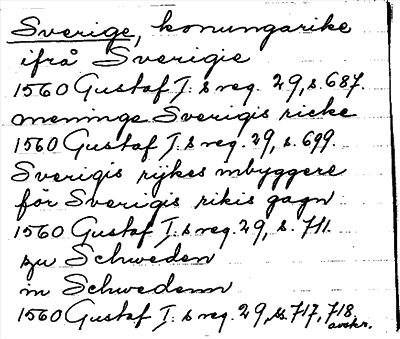 Sverige, konungarike
ifrå Sverigie
1560 Gustaf I. s reg. 29, s. 687.
meninge Sverigis ricke
1560 Gustaf I. s reg. 29, s. 699.
Sverigis rijkes inbyggere
för Sverigis rikis gagn
1560 Gustaf I. s reg. 29, s. 711.
zu Schweden
in Schwedenn
1560 Gustaf I. s reg. 29, ss. 717, 718.
avskr.